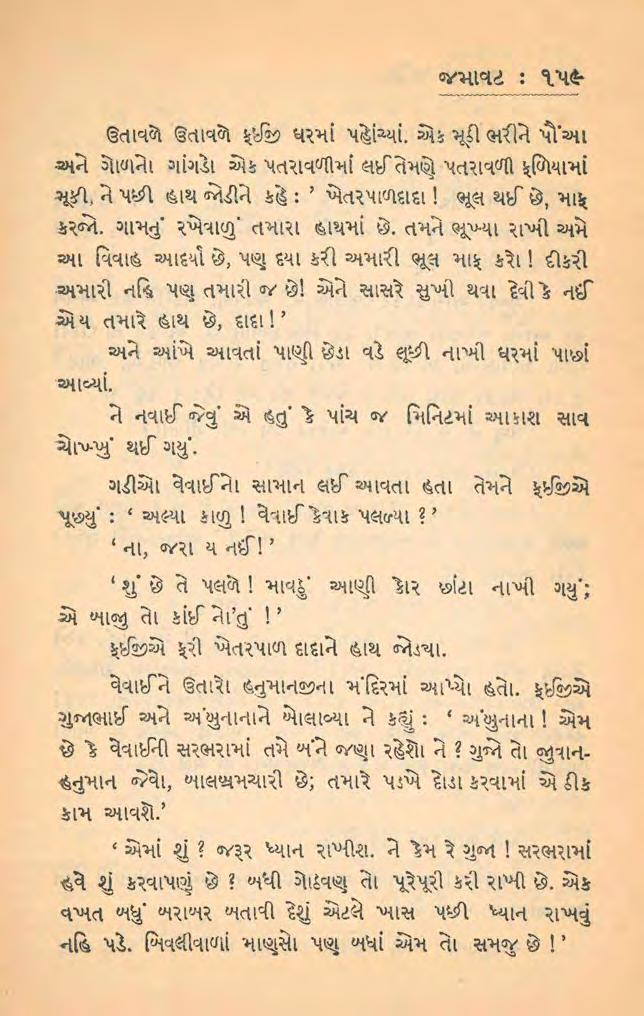 જમાવટ : ૧૫૯
ઉતાવળે ઉતાવળે ફઈજી ઘરમાં પહોંચ્યાં. એક મૂઠી ભરીને પૌંઆ
અને ગોળનો ગાંગડો એક પતરાવળીમાં લઈ તેમણે પતરાવળી ફળિયામાં
મૂકી, ને પછી હાથ જોડીને કહે : ’ ખેતરપાળદાદા ! ભૂલ થઈ છે, માફ
કરજો. ગામનું રખેવાળું તમારા હાથમાં છે. તમને ભૂખ્યા રાખી અમે
આ વિવાહ આદર્યો છે, પણ દયા કરી અમારી ભૂલ માફ કરો ! દીકરી
અમારી નહિ પણ તમારી જ છે! એને સાસરે સુખી થવા દેવી કે નઈ
એય તમારે હાથ છે, દાદા !’
અને આંખે આવતાં પાણી છેડા વડે લૂછી નાખી ઘરમાં પાછાં
આવ્યાં.
ને નવાઈ જેવું એ હતું કે પાંચ જ મિનિટમાં આકાશ સાવ
ચોખ્ખું થઈ ગયું.
ગડીઓ વેવાઈનો સામાન લઈ આવતા હતા તેમને ફઈજીએ
પૂછ્યું : ‘ અલ્યા કાળુ ! વેવાઈ કેવાક પલળ્યા ?’
‘ ના, જરા ય નઈ !’
‘ શું છે તે પલળે ! માવઠું આણી કોર છાંટા નાખી ગયું;
એ બાજુ તો કાંઈ નો’તું !’
ફઈજીએ ફરી ખેતરપાળ દાદાને હાથ જોડ્યા.
વેવાઈને ઉતારો હનુમાનજીના મંદિરમાં આપ્યો હતો. ફઈજીએ
ગુજાભાઈ અને અંબુનાનાને બોલાવ્યા ને કહ્યું : ‘ અંબુનાના ! એમ
છે કે વેવાઈની સરભરામાં તમે બંને જણા રહેશો ને ? ગુજો તો જુવાન-
હનુમાન જેવો, બાલબ્રમચારી છે; તમારે પડખે દોડા કરવામાં એ ઠીક
કામ આવશે.’
‘ એમાં શું ? જરૂર ધ્યાન રાખીશ. ને કેમ રે ગુજા ! સરભરામાં
હવે શું કરવાપણું છે ? બધી ગોઠવણ તો પૂરેપૂરી કરી રાખી છે. એક
વખત બધું બરાબર બતાવી દેશું એટલે ખાસ પછી ધ્યાન રાખવું
નહિ પડે. બિવલીવાળાં માણસો પણ બધાં એમ તો સમજુ છે !’